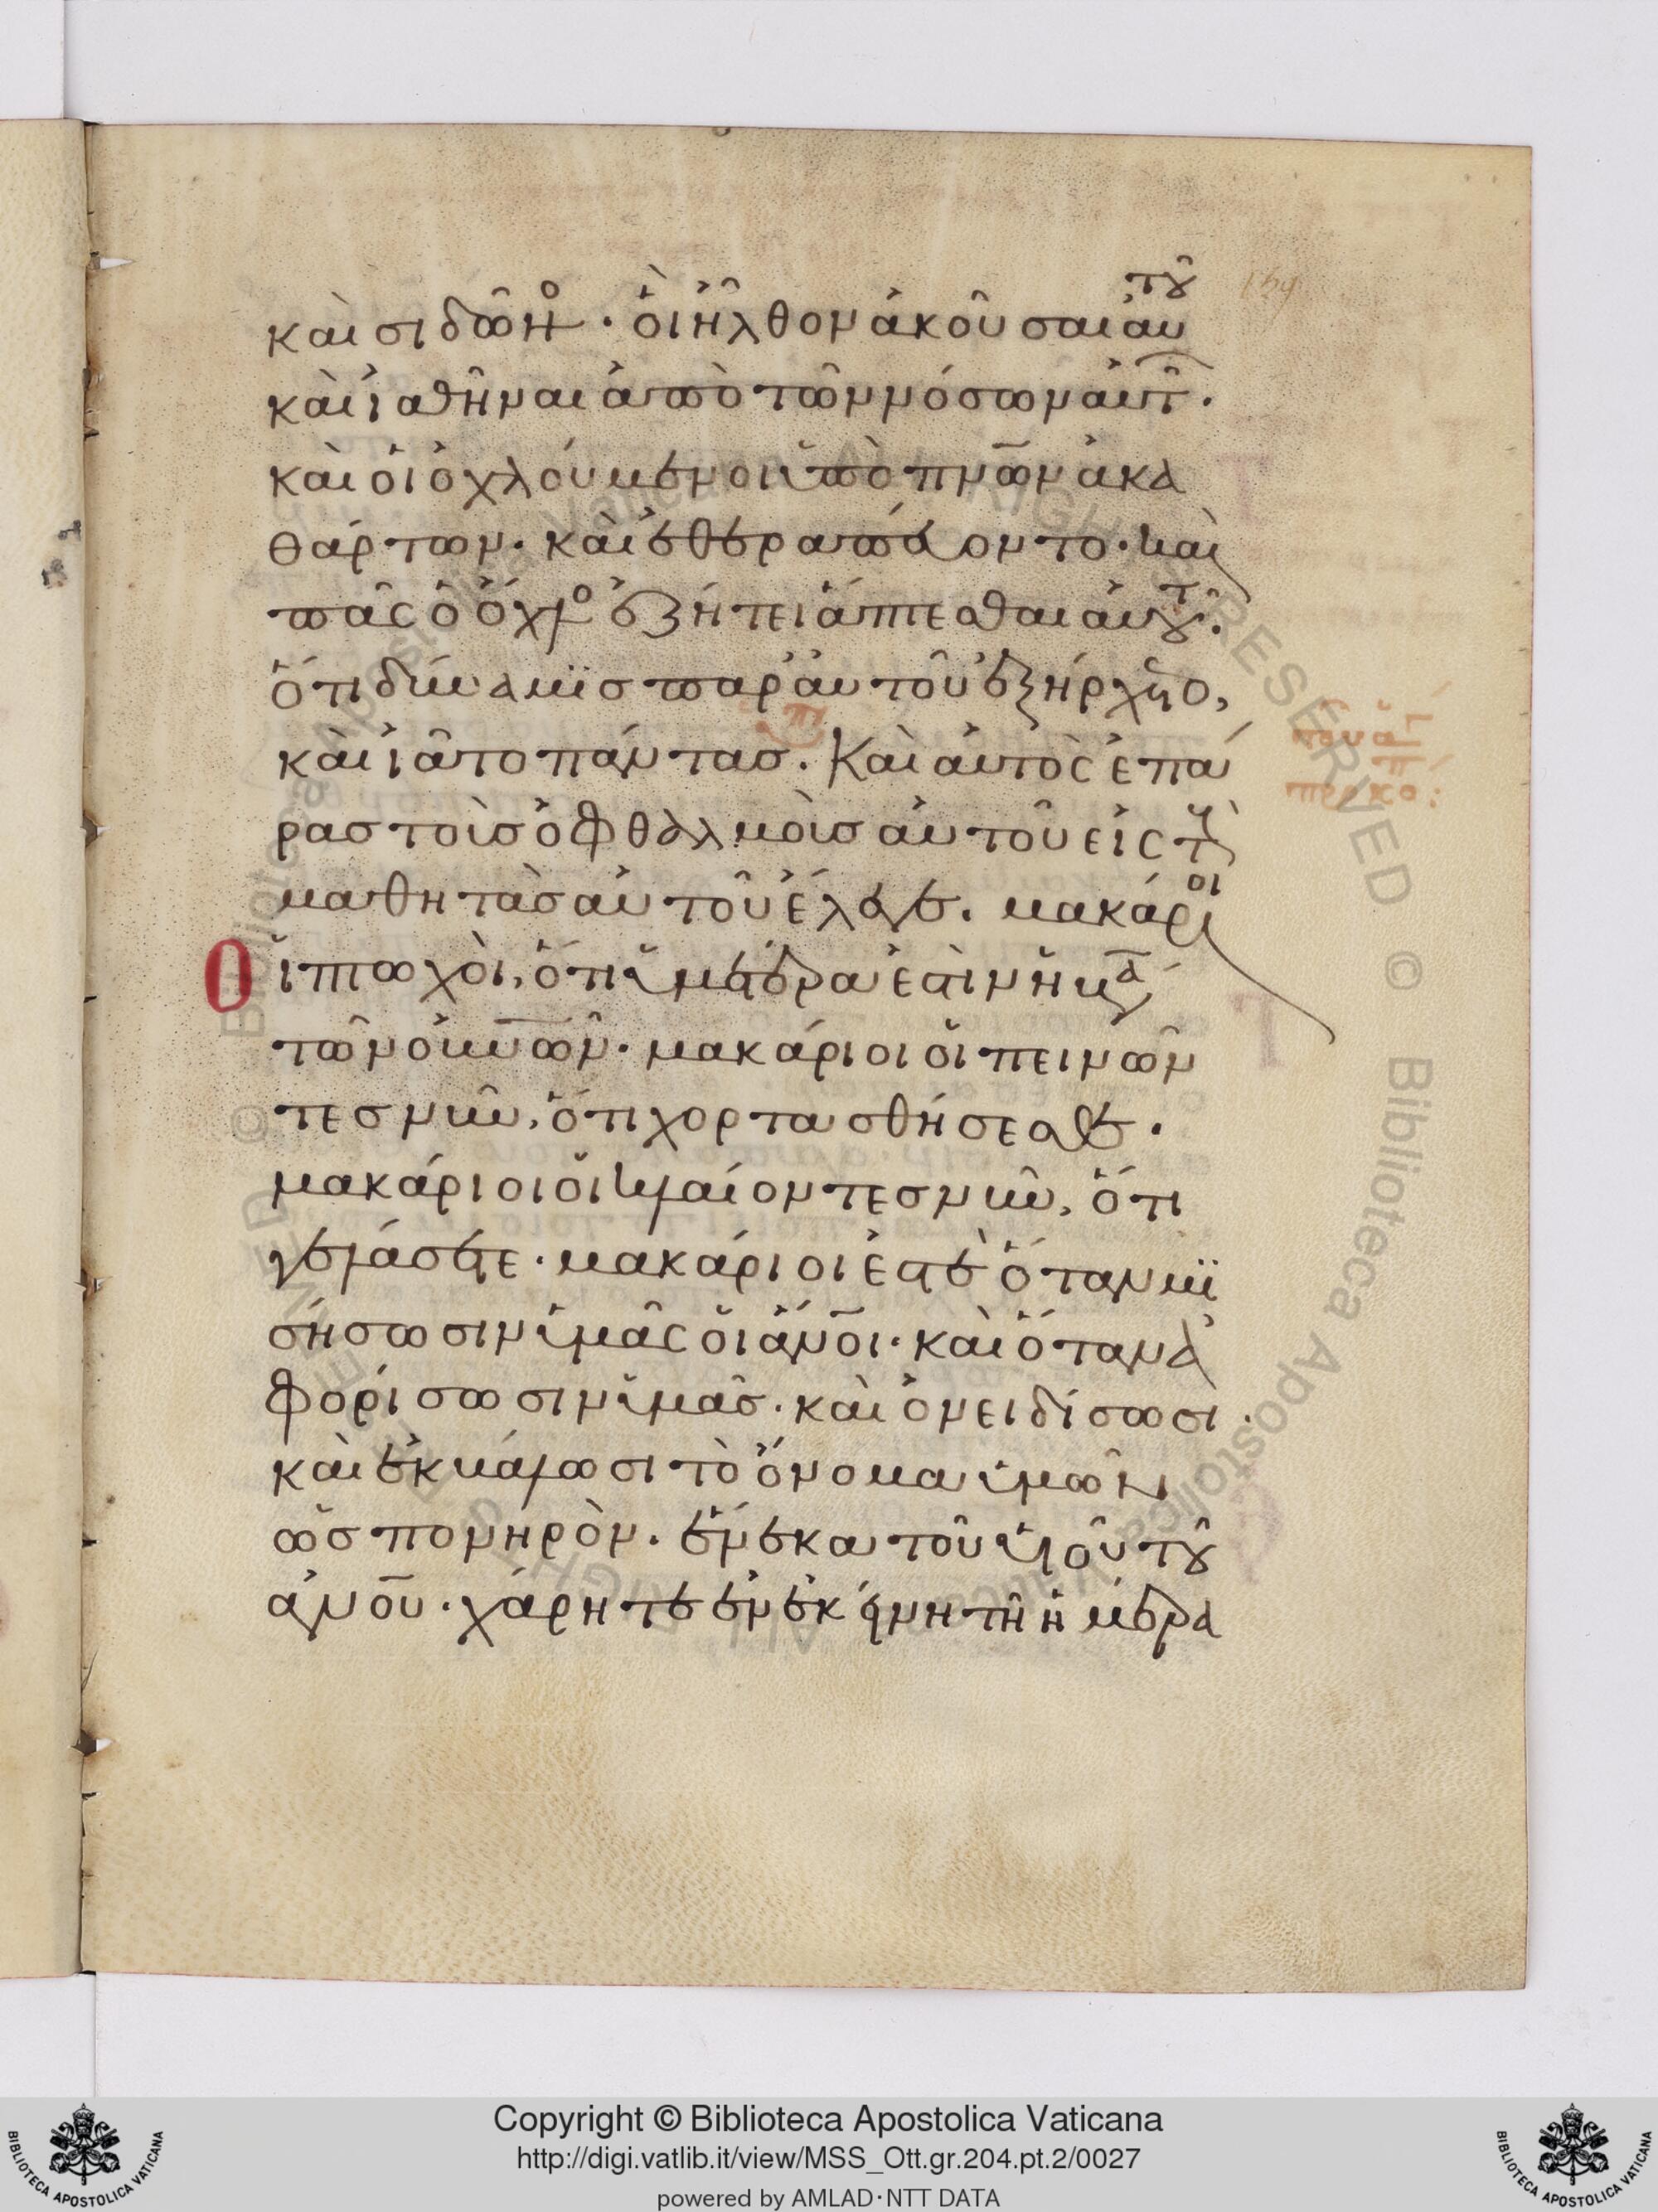 καὶ σιδῶνος· οἳ ἦλθον ἀκοῦσαι αὐτοῦ
καὶ ἰαθῆναι ἀπὸ τῶν νόσων αὐτῶν.
καὶ οἱ ὀχλούμενοι ὑπὸ πνῶν ἀκα
θάρτων· καὶ ἐθεραπεύοντο· καὶ
πᾶς ὁ ὄχλος ἐζήτει ἅπτεσθαι αὐτοῦ.
ὅτι δύναμϊσ παρ' αὐτοῦ ἐξήρχετο,
καὶ ἰᾶτο πάντασ. Καὶ αὐτὸς ἐπά
ρασ τοὺσ ὀφθαλμοὺσ αὐτοῦ εἰς τοὺς
μαθητὰσ αὐτοῦ ἔλεγε. μακάριοι
Οἱ πτωχοὶ, ὅτι ὑμετέρα ἐστὶν ἡ βασιλεία
τῶν οὐνῶν· μακάριοι οἱ πεινῶν
τεσ νῦν, ὅτι χορτασθήσεσθε.
μακάριοι οἱ κλαίοντεσ νῦν, ὅτι
γελάσετε· μακάριοι ἐστὲ ὅταν μϊ
σήσωσιν ὑμᾶς οἱ ἄνοι· καὶ ὅταν ἀ
φορίσωσιν ὑμᾶσ. καὶ ὀνειδίσωσι.
καὶ ἐκβάλωσι τὸ ὄνομα ὑμῶν
ὡσ πονηρὸν. ἕνεκα τοῦ υἱοῦ τοῦ
ἀνου· χάρητε ἐν ἐκείνη τῆ ἡμέρα
Copyright © Biblioteca Apostolica Vaticana
http://digi.vatlib.it/view/MSS_Ott.gr.204.pt.2/0027
powered by AMLAD·NTT DATA
BIBLIOTECA APOSTOLICA VATICANA
BIBLIOTECA APOSTOLICA VATICANA